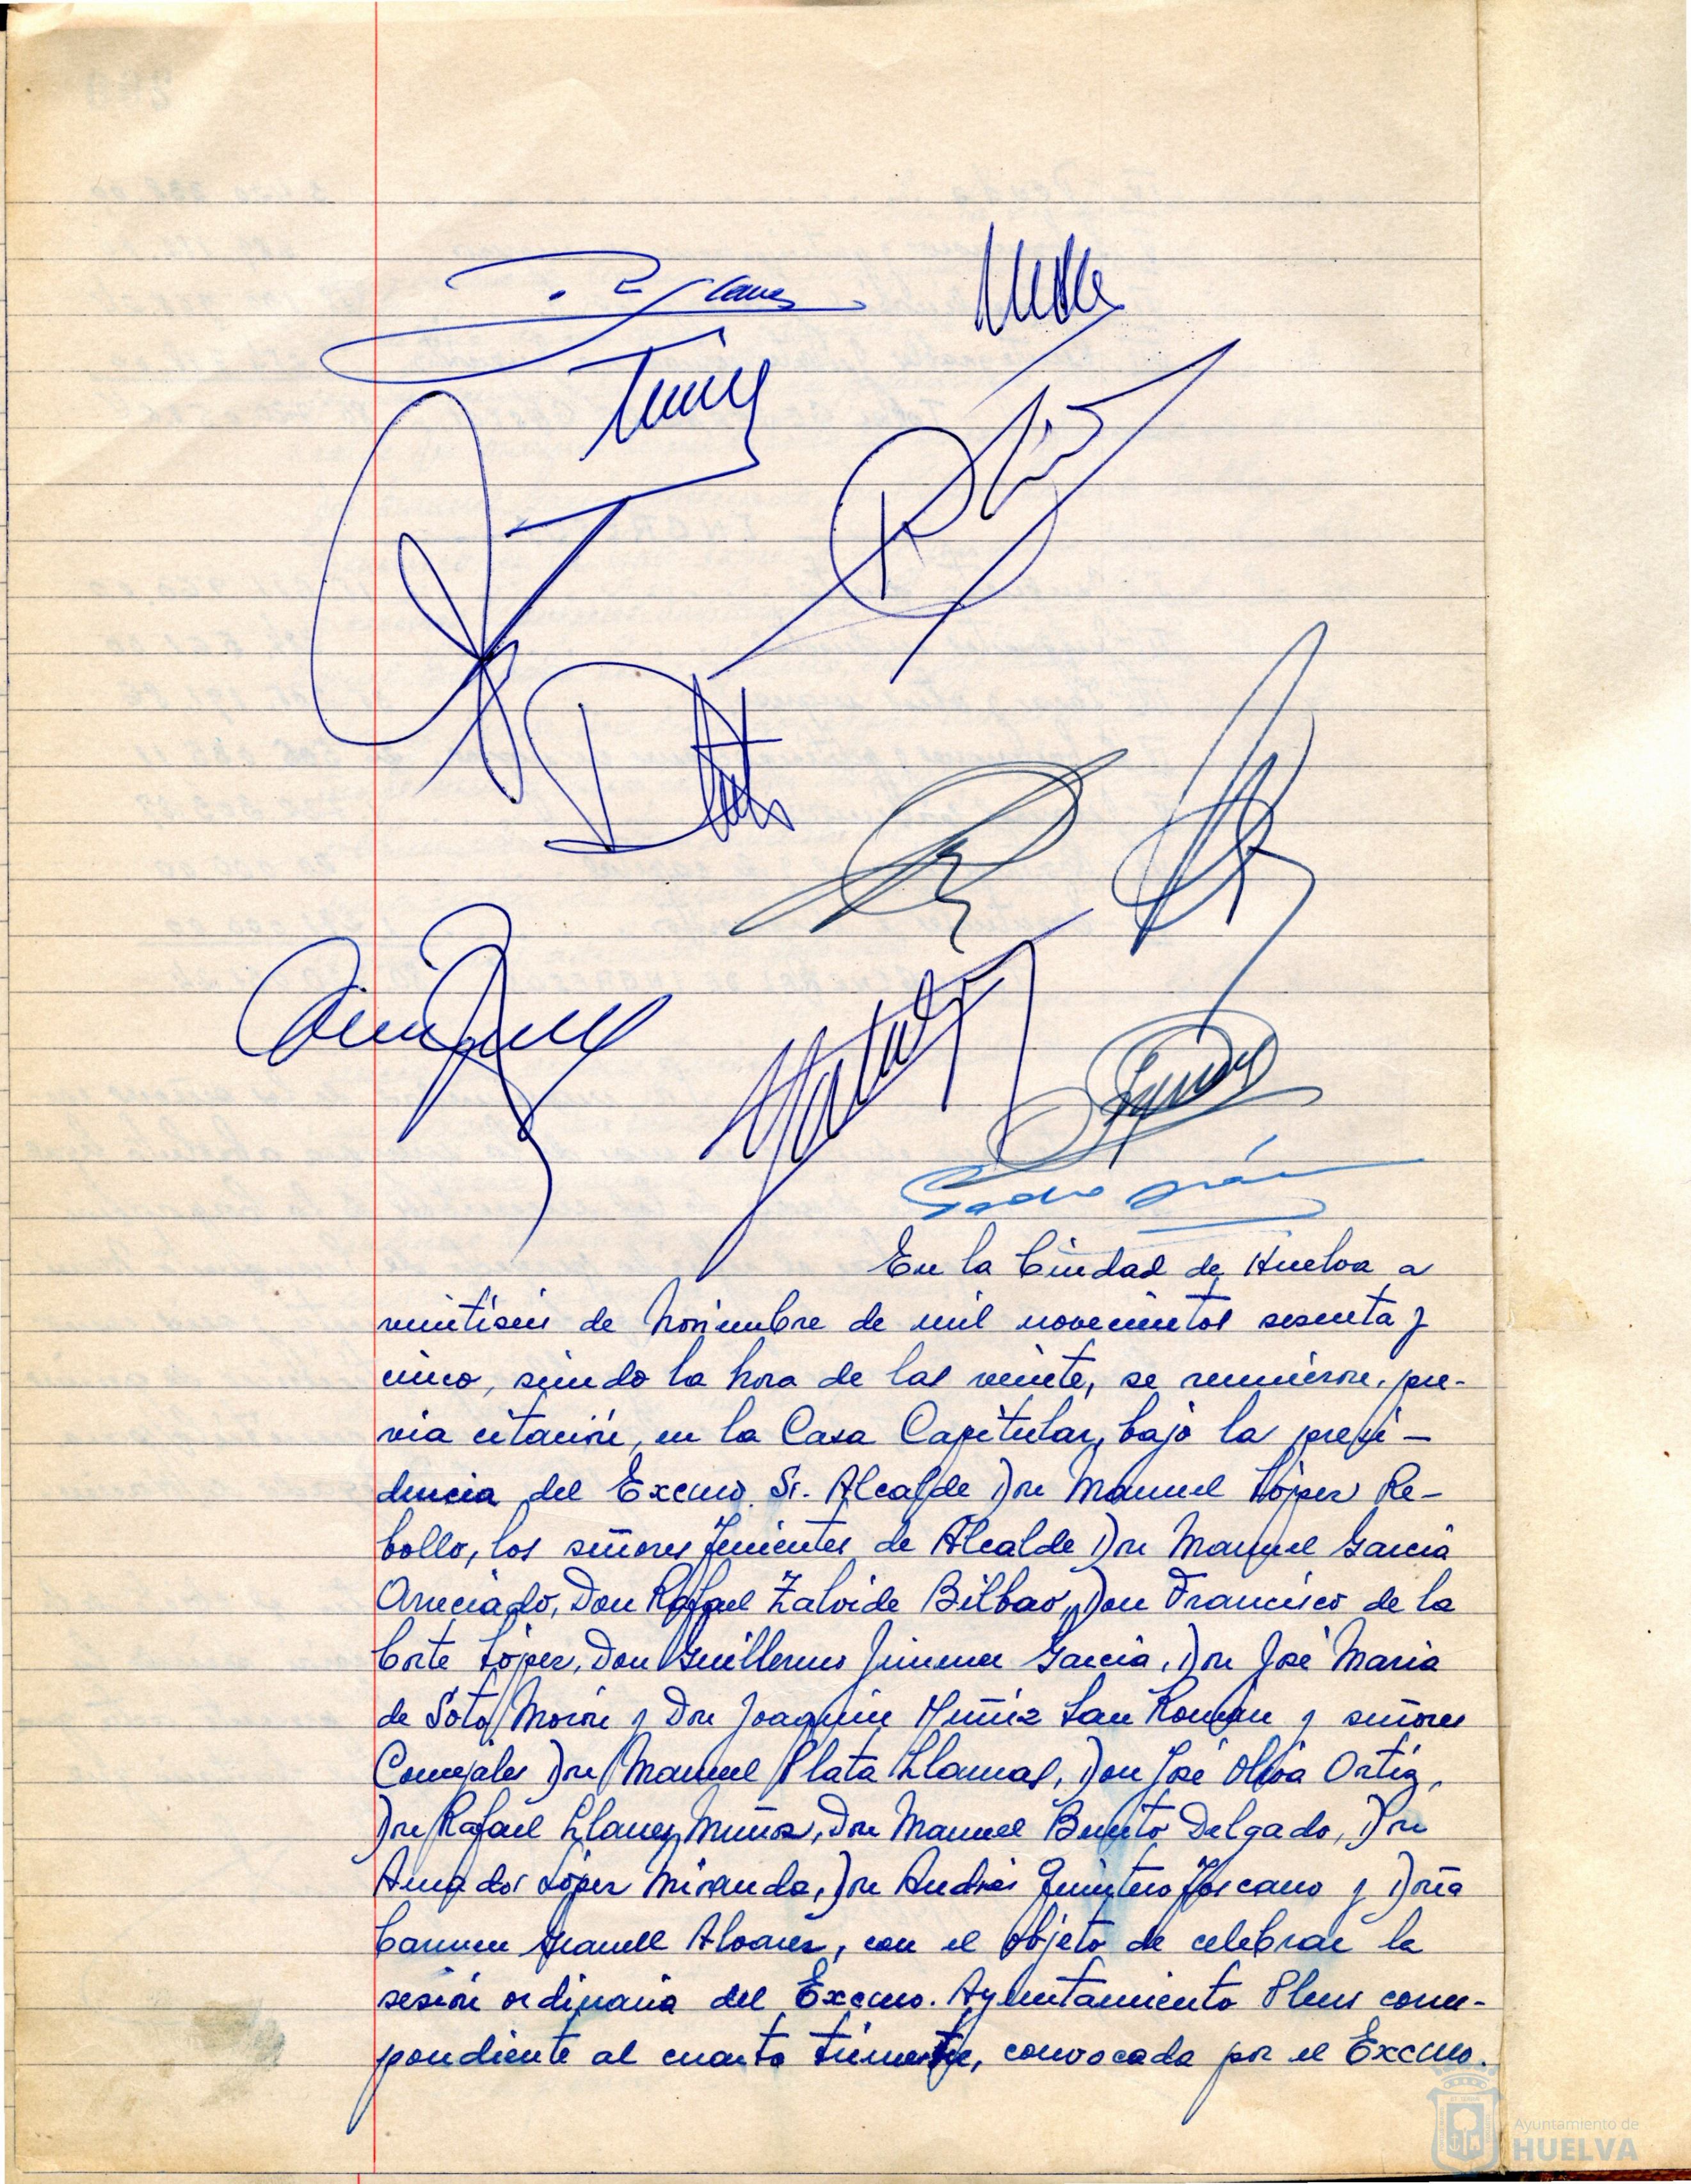 En la Ciudad de Huelva a
veintiseis de Noviembre de mil novecientos sesenta y
cinco, siendo la hora de las veinte, se reunieron, pre-
via citación, en la Casa Capitular, bajo la presi-
dencia del Excmo. Sr. Alcalde Don Manuel López Re-
bollo, los señores Tenientes de Alcalde Don Manuel Garcia
Don Rafael Zalvide Bilbao, Don Francisco de la
Corte López, Don Guillermo Jimenez Garcia, Don José Maria
de Soto Morón y Don Joaquin Muñiz San Román y señores
Concejales Don Manuel Plata Llamas, Don José Oliva Ortiz,
Don Rafael Llanes Muñoz, Don Manuel Benito Delgado, Don
Amador López Miranda, Don Andrés Quintero Toscano y Doña
Carmen Granell Alvarez, con el objeto de celebrar la
sesión ordinaria del Excmo. Ayuntamiento Pleno corres-
pondiente al cuarto trimestre, convocada por el Excmo.
Ayuntamiento de
HUELVA